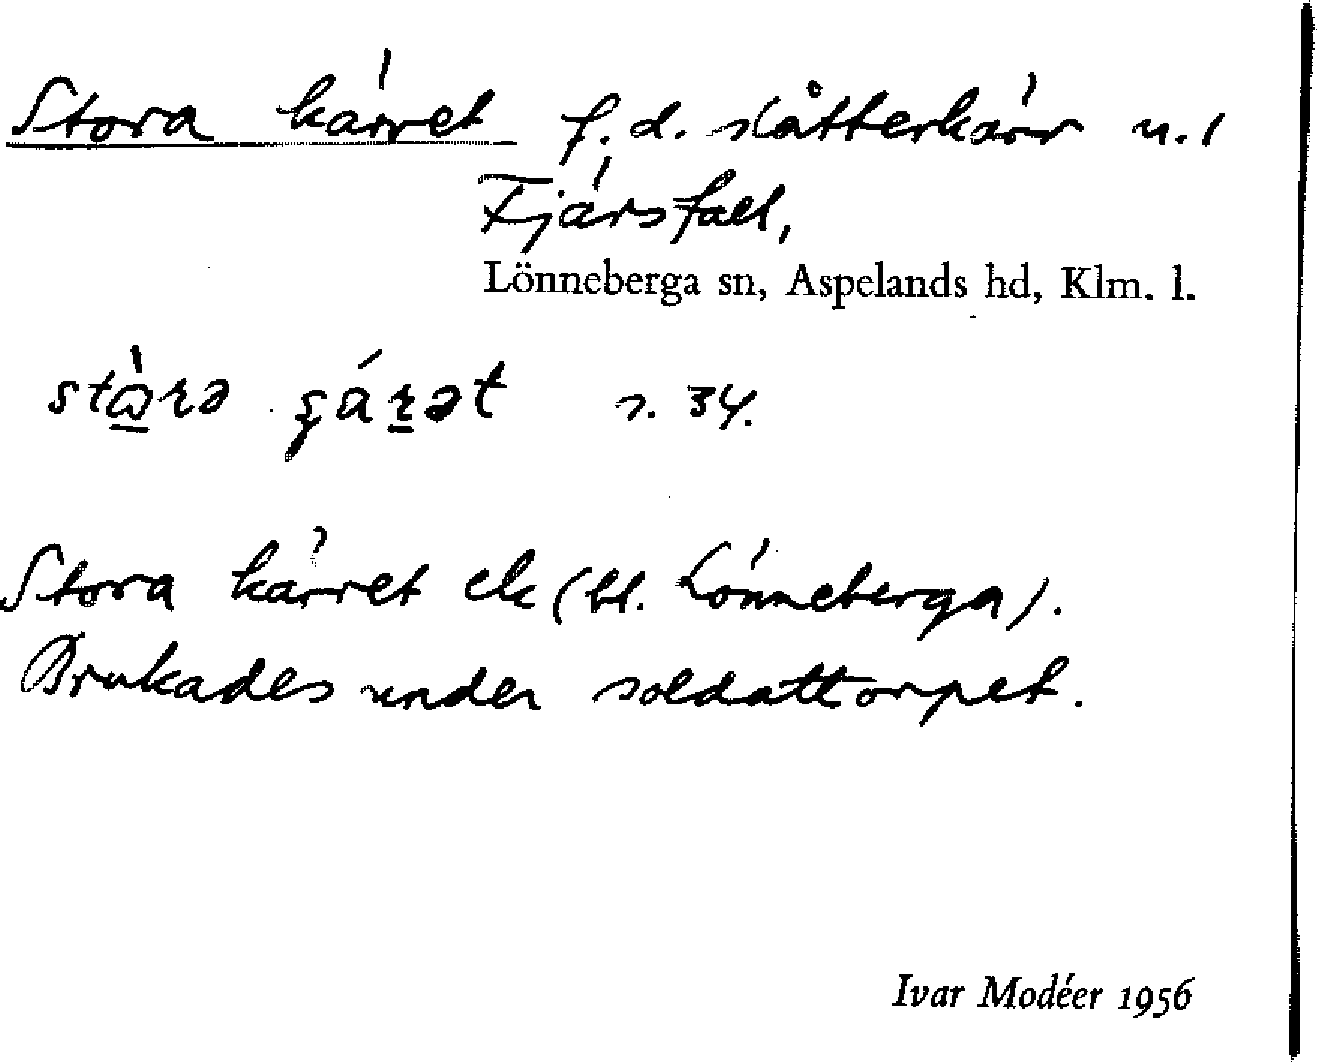 Stora kärret f.d. slåtterkärr u. 1
Fjärsfall,
Lönneberga sn, Aspelands hd, Klm. l.
s. 34.
Stora kärret ek (bl. Lönneberga).
Brukades under soldattorpet.
Ivar Modéer 1956